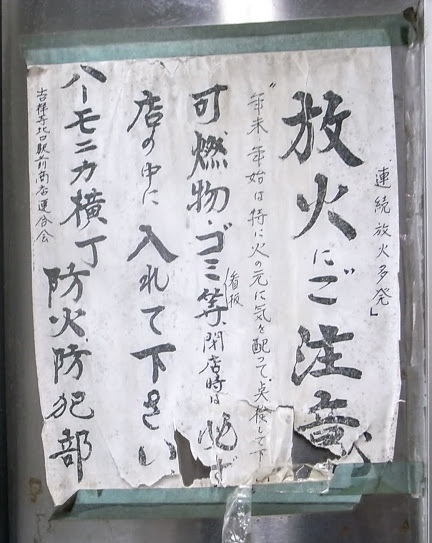 連続放火多発」
放火にご注意
"年末年始は特に火の元に気を配って、点検して下
可燃物・ゴミ等、閉店時は必ず
看板
店の中に入れて下さい
ハーモニカ横丁防火防犯部
吉祥寺北口駅前商店連合会